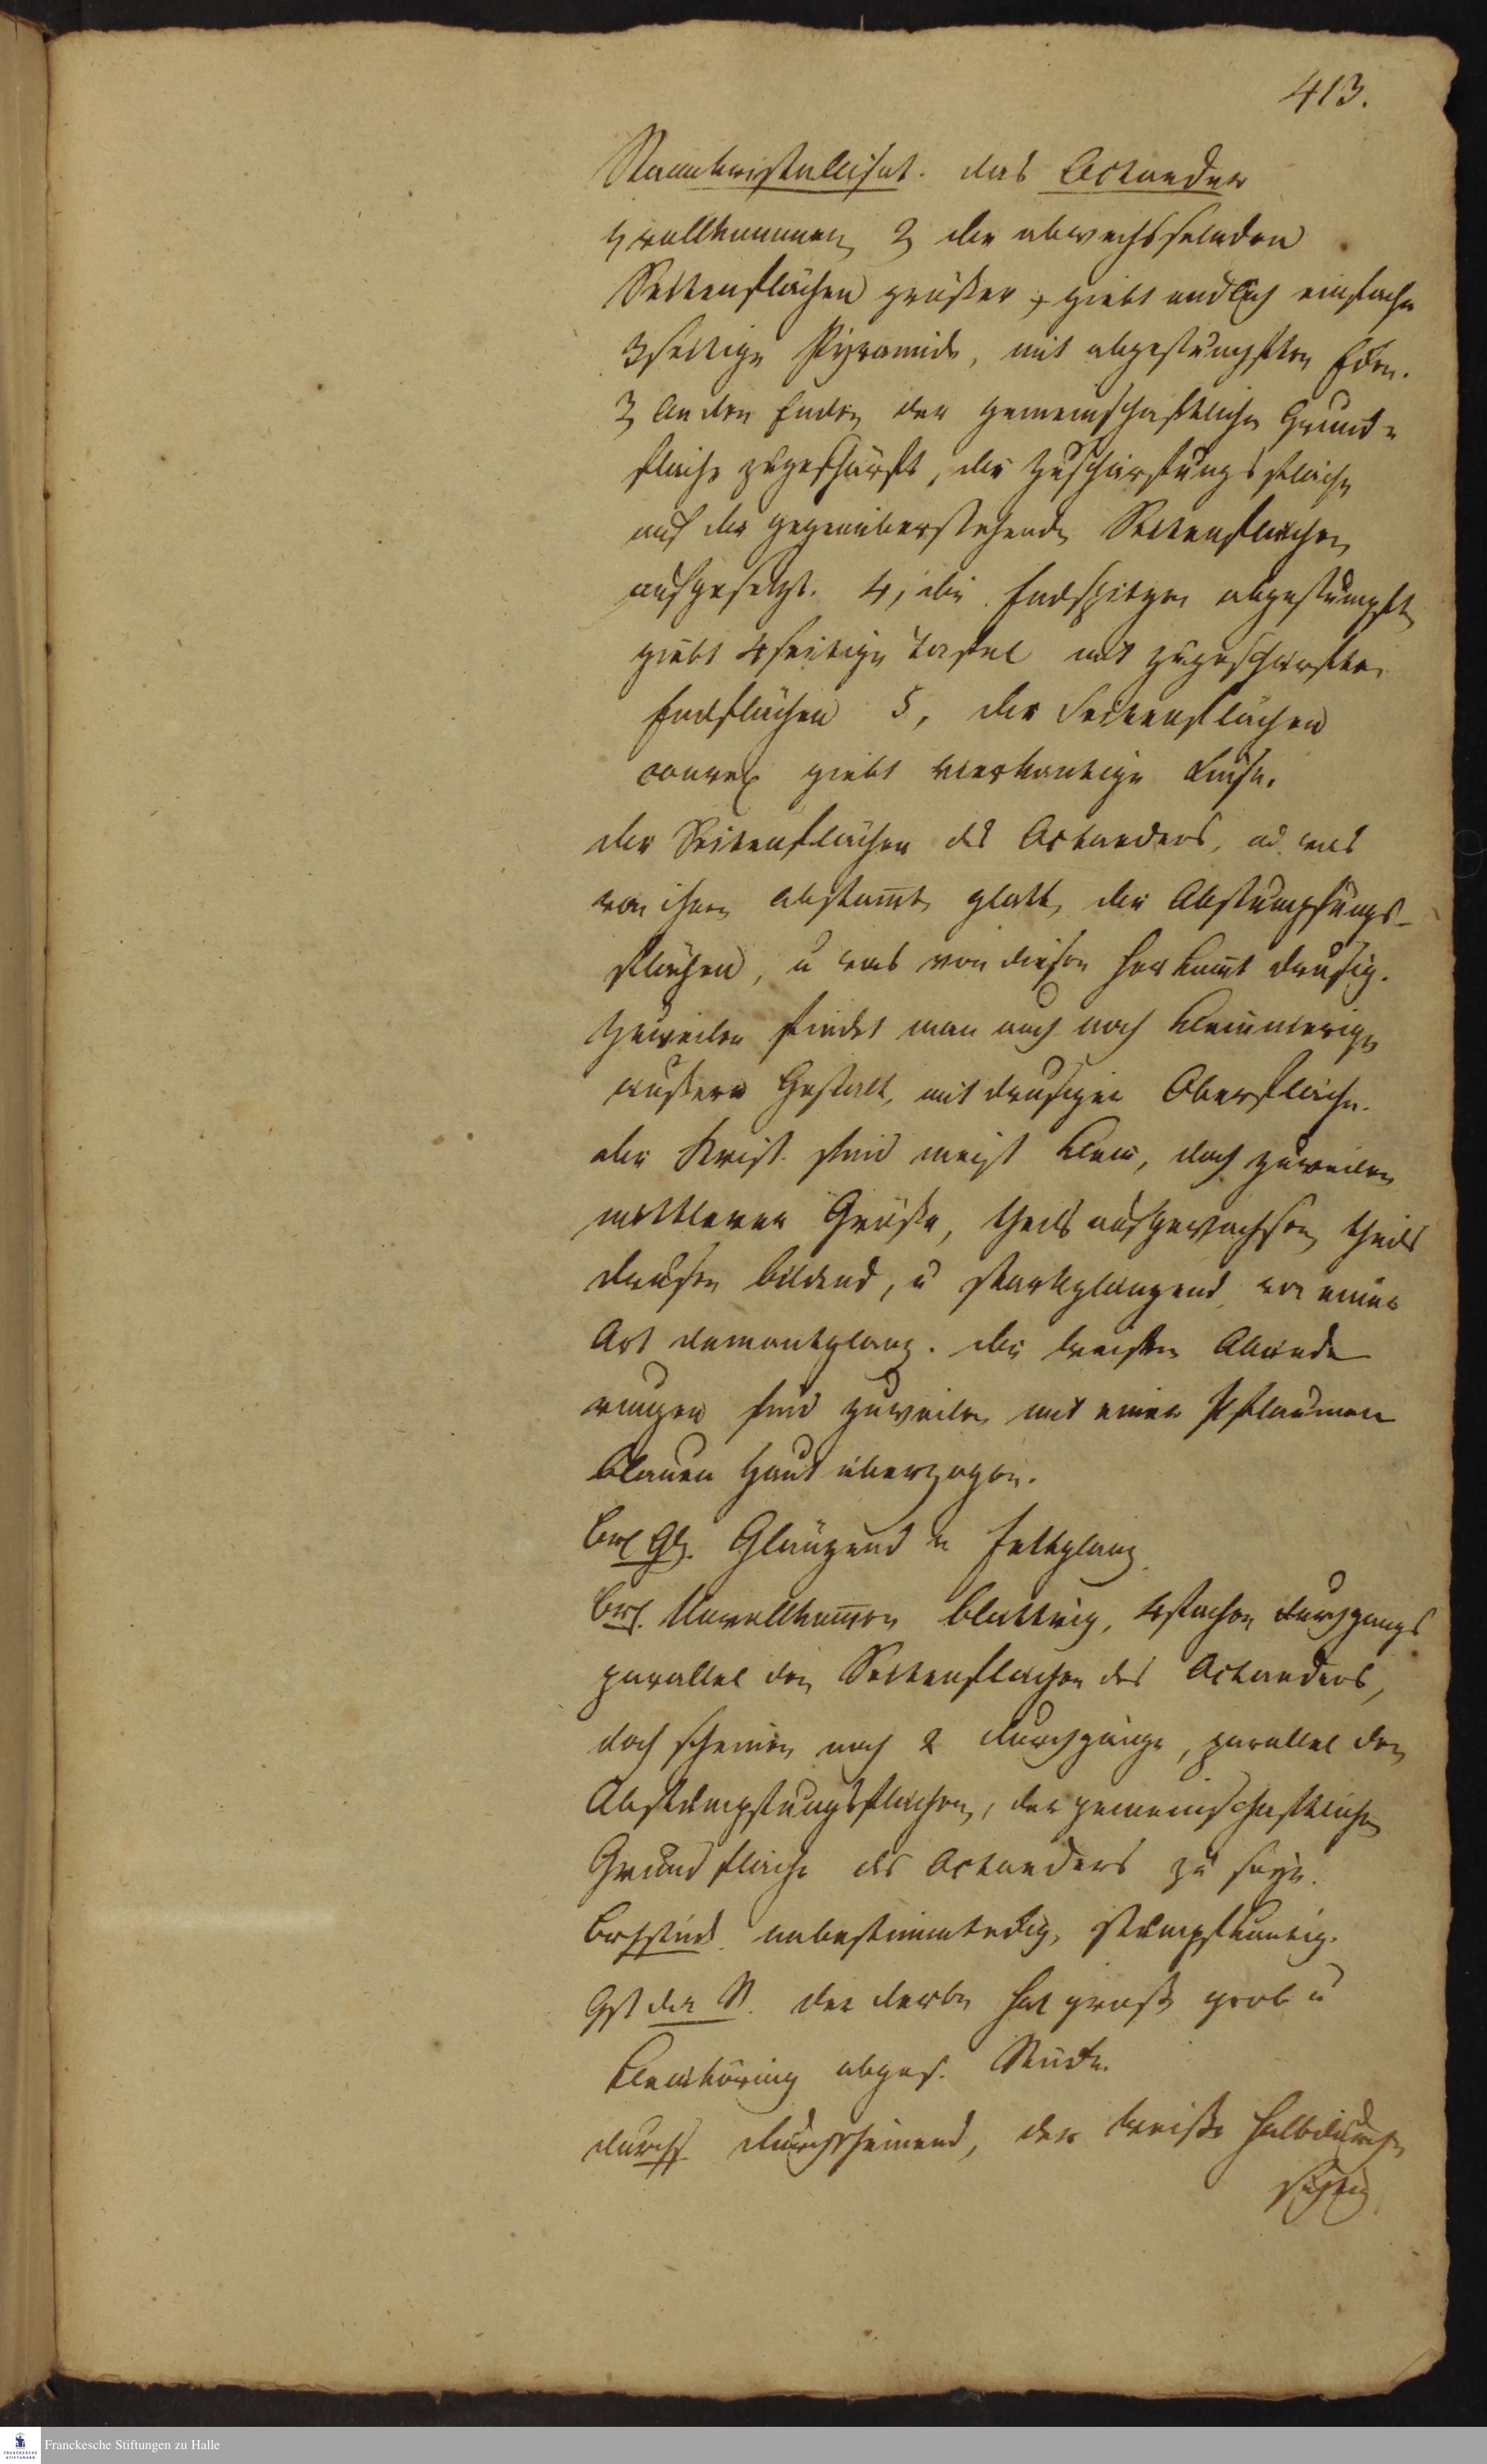 413.
Stammkristallisat. das Octaeder
1, vollkommen 2, die abwechsselnden
Seitenflächen größer, giebt endlich einfache
3seitige Pÿramide, mit abgestumpften Eken.
3, An den Enden der gemeinschaftlichen Grund-
fläche zugeschärft, die Zuschärfungsflächen
auf die gegenüberstehenden Seitenflächen
aufgesetzt. 4, die Endspitzen abgestumpft
giebt 4seitige Tafel mit zugeschärften
Endflächen 5, die Seitenflächen
convex giebt vierkantige Linse.
die Seitenflächen des Octaeders, od was
von ihnen abstamt, glatt, die Abstumpfungs-
flächen, u was von diesen herkomt drusig.
Zuweilen findet man auch noch
äußere Gestalt, mit drusiger Oberfläche.
die Krist. sind meist klein, doch zuweilen
mittlerer Größe, theils aufgewachsen theils
drusen bildend, u starkglänzend, von einer
Art demantglanz. die weißen Abände
rungen sind zuweilen mit einer Pflaumen
blauen Haut überzogen.
Br Gl. Glänzend v Fettglanz.
Br. Unvollkomen blättrig, 4fachen durchgangs
parallel den Seitenflächen des Octaeders,
doch scheinen noch 2 durchgänge, parallel den
Abstumpfungsflächen, der gemeinschaftlichen
Grundfläche des Octaeders zu seyn.
Brstück. unbestimmtekig, stumpfkantig.
Gst der St. der derbe hat groß grob u
kleinkörnig abges. Stücke.
durchs durchscheinend, der weiße halbdurch
sichtig
Franckesche Stiftungen zu Halle